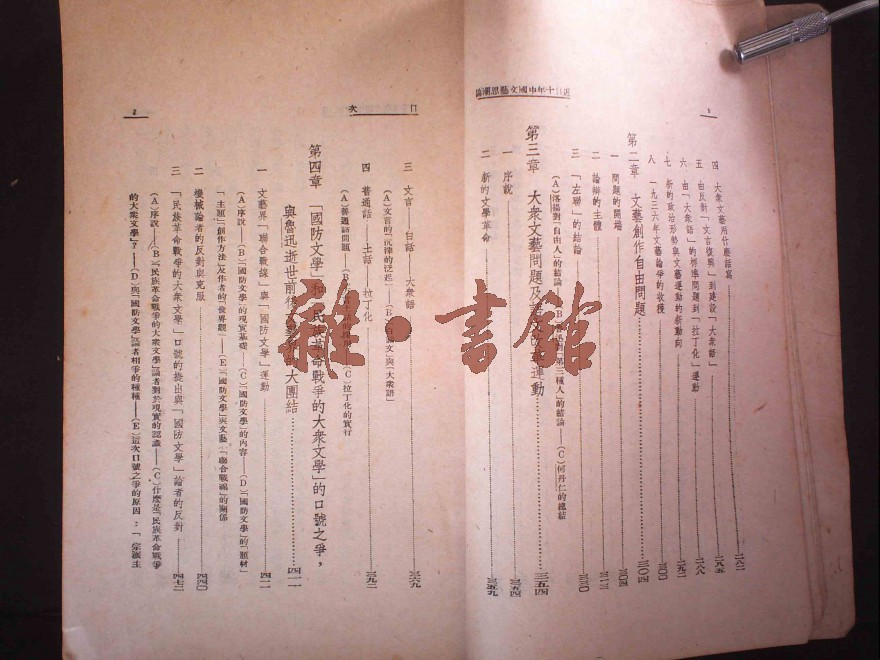 近二十年中國文藝思潮論
四 大衆文藝用什麼話寫……二八二
五 由反對「文言復興」到建設「大衆語」……二八五
六 由「大衆語」的標準問題到「拉丁化」運動……二八八
七 新的政治形勢與文藝運動的新動向……二九二
八 一九三六年文藝論爭的收穫……三〇〇
第二章 文藝創作自由問題……三〇四
一 問題的開端……三〇四
二 論辯的主體……三一三
三 「左聯」的結論……三三〇
(A)洛揚對「自由人」的結論——(B)「第三種人」的結論——(C)何丹仁的總結
第三章 大衆文藝問題及語文改革運動……三五四
一 序說……三五四
二 新的文學革命……三五九
目 次
2
三 文言——白話——大衆語……三六九
(A)文言的「沉渣的泛起」——(B)「白話文」與「大衆語」
四 普通話——土話——拉丁化……三九二
(A)普通話問題——(B)——(C)拉丁化的實行
第四章 「國防文學」和「民族革命戰爭的大衆文學」的口號之爭,
與魯迅逝世前後文藝界的大團結……四一一
一 文藝界「聯合戰線」與「國防文學」運動……四一一
(A)序說——(B)「國防文學」的現實基礎——(C)「國防文學」的內容——(D)「國防文學」的「題材」
「主題」「創作方法」及作者的「世界觀」——(E)「國防文學」與文藝「聯合戰線」的關係
二 機械論者的反對與克服……四四〇
三 「民族革命戰爭的大衆文學」口號的提出與「國防文學」論者的反對……四七二
(A)序說——(B)「民族革命戰爭的大衆文學」論者對於現實的認識——(C)什麼是「民族革命戰爭
的大衆文學」?——(D)與「國防文學」論者相爭的種種——(E)這次口號之爭的原因:「宗派主
雅·書館